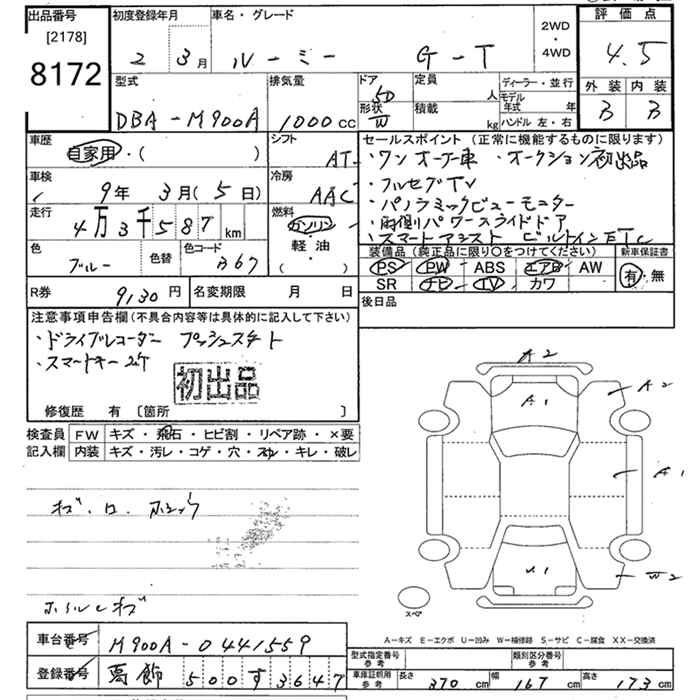 出品番号 初度登録年月 車名・グレード 2WD・4WD 評価点
[2178] 2 3月 ルーミー G-T 4.5
8172 外装 内装
型式 排気量 ドア 5D 定員 人 ディーラー・並行 B B
DBA-M900A 1000cc 形状 W 積載 kg モデル年式 年 ハンドル 左・右
車歴 シフト セールスポイント (正常に機能するものに限ります)
自家用・( ) AT ・ワンオーナー車 ・オークション初出品
車検 冷房 ・フルセグTV
9年 3月(5日) AAC ・パノラミックビューモニター
走行 燃料 ・両側パワースライドドア
4万3千587km ガソリン ・スマートアシスト ビルトインETC
色 色替 色コード 軽油 装備品 (純正品に限り○をつけてください) 新車保証書
ブルー B67 ・( ) PS PW ABS エアB AW 有・無
SR ナビ TV カワ
R券 9130円 名変期限 月 日 後日品
注意事項申告欄 (不具合内容等は具体的に記入して下さい)
・ドライブレコーダー プッシュスタート
・スマートキー 2ケ
初出品
修復歴 有 [箇所 ]
検査員 FW キズ・飛石・ヒビ割・リペア跡・×要
記入欄 内装 キズ・汚レ・コゲ・穴・スレ・キレ・破レ
A2
A1 A2
A1
U1 W2
ホイルキズ
スペア
A-キズ E-エクボ U-凹み W-補修跡 S-サビ C-腐食 XX-交換済
車台番号 M900A-0441559 型式指定番号 参考 類別区分番号 参考
登録番号 葛飾 500す3647 車庫証明用 参考 長さ 370cm 幅 167cm 高さ 173cm